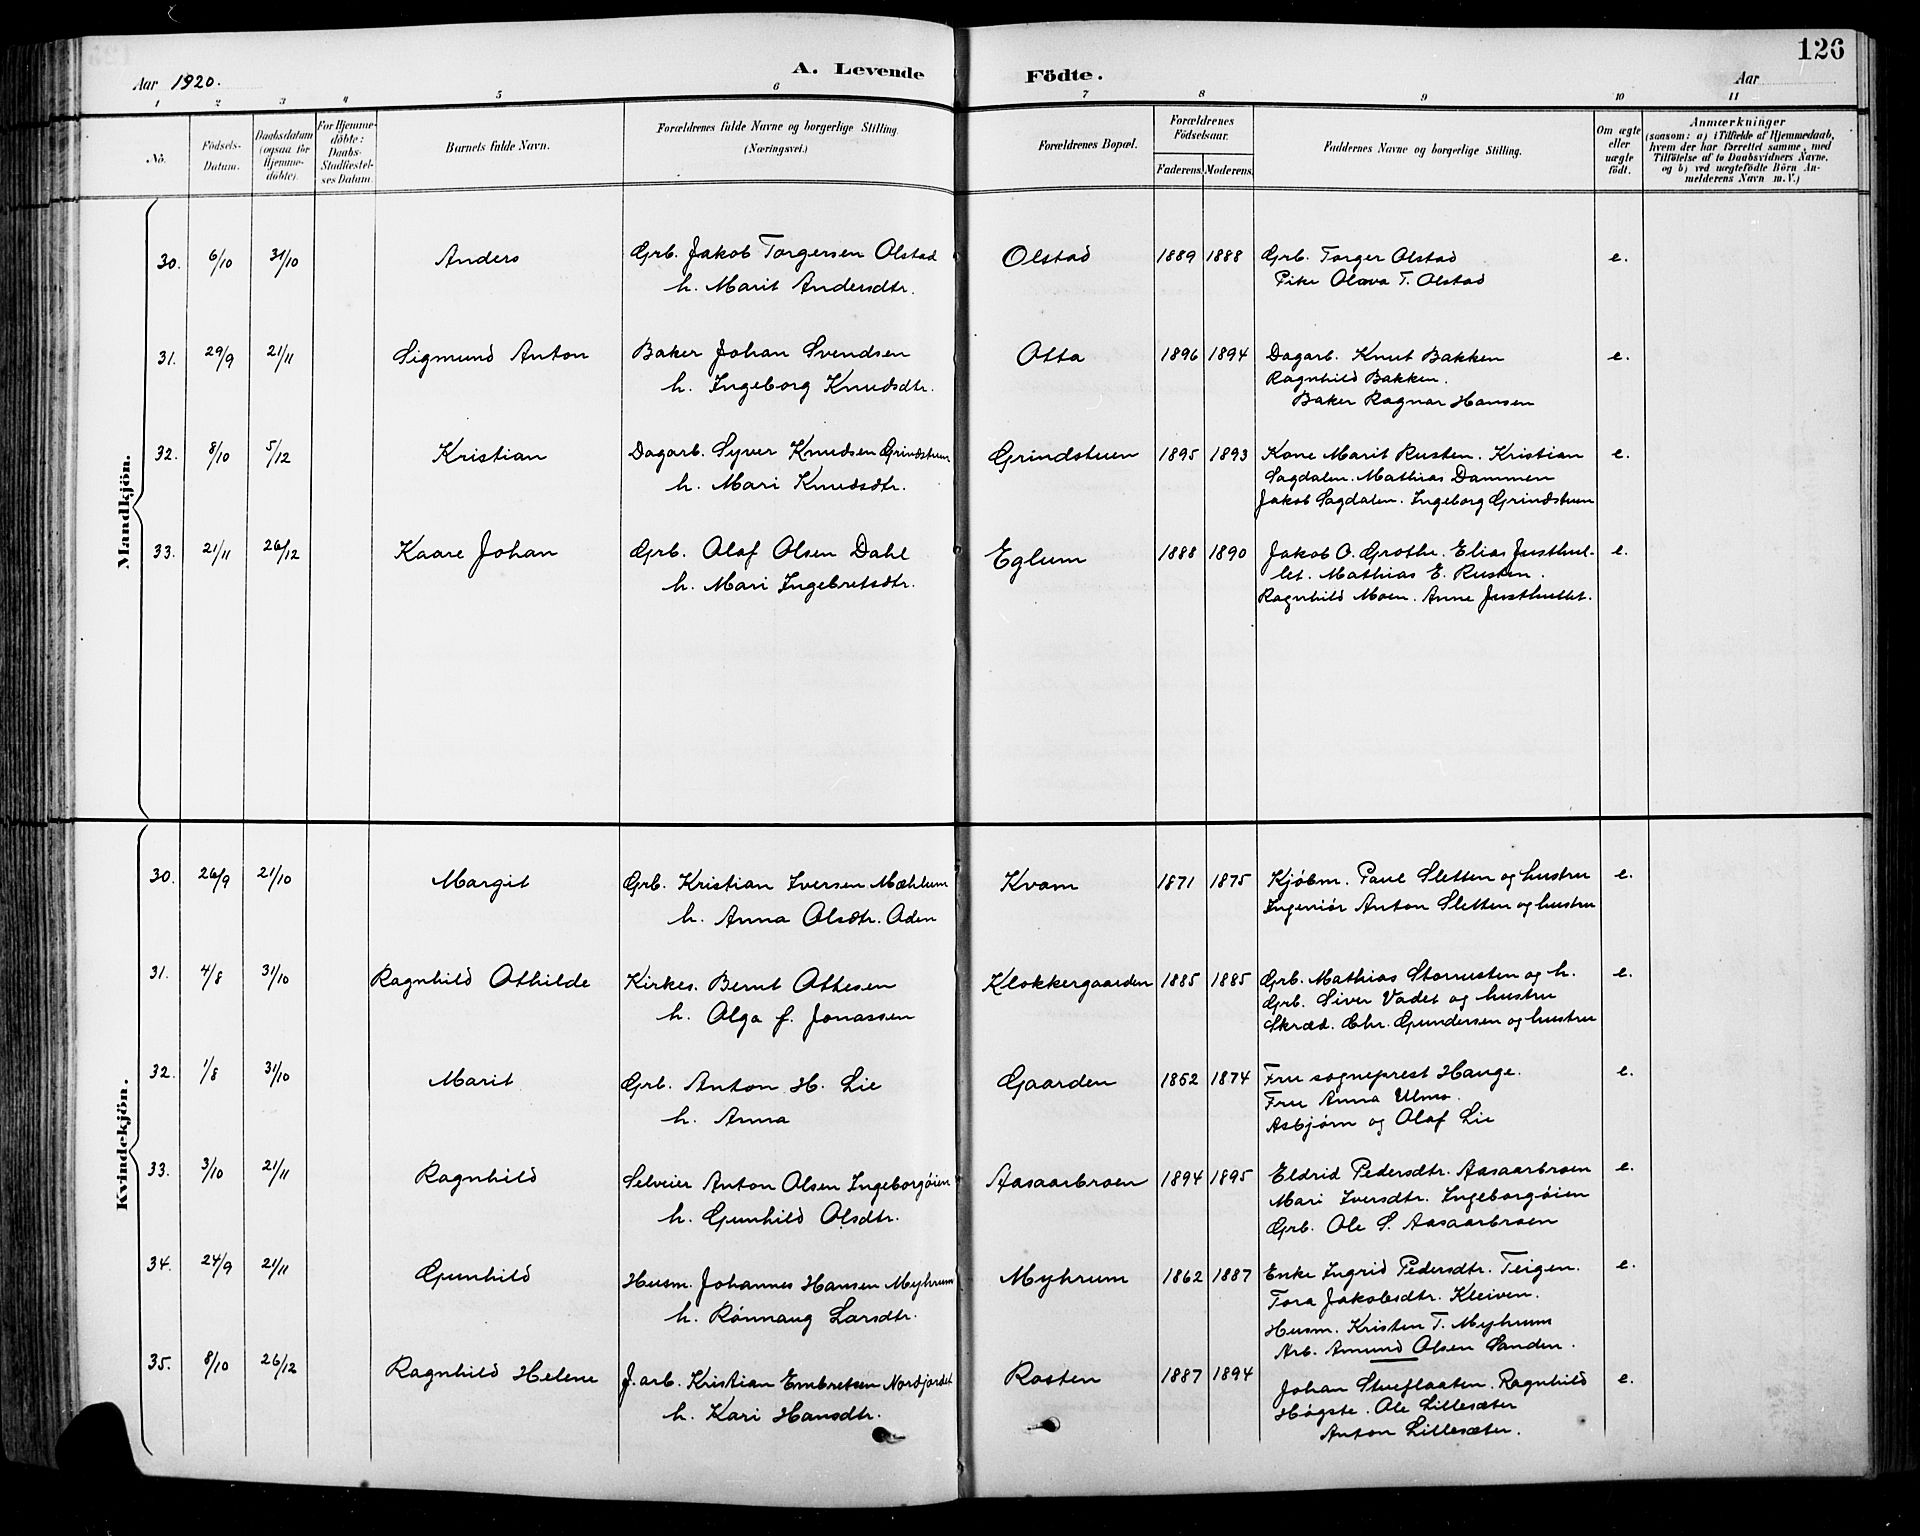 126
Aar 1920. A. Levende Födte. Aar
1 2 3 4 5 6 7 8 9 10 11
No. Födsels-Datum. Daabsdatum (ogsaa for Hjemmedöbte). For Hjemmedöbte: Daabs-Stadfæstelses Datum. Barnets fulde Navn. Forældrenes fulde Navne og borgerlige Stilling. (Næringsvei.) Forældrenes Bopæl. Forældrenes Födselsaar. Faderens. Moderens. Faddernes Navne og borgerlige Stilling. Om ægte eller uægte födt. Anmærkninger (saasom: a) i Tilfælde af Hjemmedaab, hvem der har forrettet samme, med Tilföielse af to Daabsvidners Navne, og b) ved uægtefödte Börn Anmelderens Navn m. V.)
Mandkjön.
30. 6/10 31/10 Anders Grb. Jakob Torgersen Olstad Olstad 1889 1888 Grb. Torger Olstad e.
h. Marit Andersdtr. Pike Olava T. Olstad
31. 29/9 21/11 Sigmund Anton Baker Johan Svendsen Otta 1896 1894 Dagarb. Knut Bakken e.
h. Ingeborg Knudsdtr. Ragnhild Bakken.
Baker Ragnar Hansen
32. 8/10 5/12 Kristian Dagarb. Syver Knudsen Grindstuen Grindstuen 1895 1893 Kone Marit Rusten. Kristian e.
h. Mari Knudsdtr. Sagdalen. Mathias Dammen
Jakob Sagdalen. Ingeborg Grindstuen
33. 21/11 26/12 Kaare Johan Grb. Olaf Olsen Dahl Eglum 1888 1890 Jakob O. Grothe. Elias Justhul- e.
h. Mari Ingebretsdtr. let. Mathias E. Rusten.
Ragnhild Moen. Anne Justhullet.
Kvindekjön.
30. 26/9 21/10 Margit Grb. Kristian Iversen Mæhlum Kvam 1871 1875 Kjøbm. Paul Sletten og hustru e.
h. Anna Olsdtr. Oden Ingeniör Anton Sletten og hustru
31. 4/8 31/10 Ragnhild Othilde Kirkes. Bernt Ottesen Klokkergaarden 1885 1885 Grb. Mathias Storrusten og h. e.
h. Olga f. Jonassen Grb. Siver Vadet og hustru
Skræd. Chr. Gundersen og hustru
32. 1/8 31/10 Marit Grb. Anton H. Lie Gaarden 1862 1874 Fru sogneprest Hauge. e.
h. Anna Fru Anna Ulmo.
Asbjørn og Olaf Lie
33. 3/10 21/11 Ragnhild Selveier Anton Olsen Ingeborgøien Aasaarbroen 1894 1895 Eldrid Pedersdtr. Aasaarbroen e.
h. Gunhild Olsdtr. Mari Iversdtr. Ingeborgøien
Grb. Ole S. Aasaarbroen
34. 24/9 21/11 Gunhild Husm. Johannes Hansen Myhrum Myhrum 1862 1887 Enke Ingrid Pedersdtr. Teigen. e.
h. Rønnaug Larsdtr. Tora Jakobsdtr. Kleiven.
Husm. Kristen T. Myhrum
Arb. Amund Olsen Sanden.
35. 8/10 26/12 Ragnhild Helene J. arb. Kristian Embretsen Nordjordet Rosten 1887 1894 Johan Stueflaaten. Ragnhild e.
h. Kari Hansdtr. Høgste. Ole Lillesæter
Anton Lillesæter.